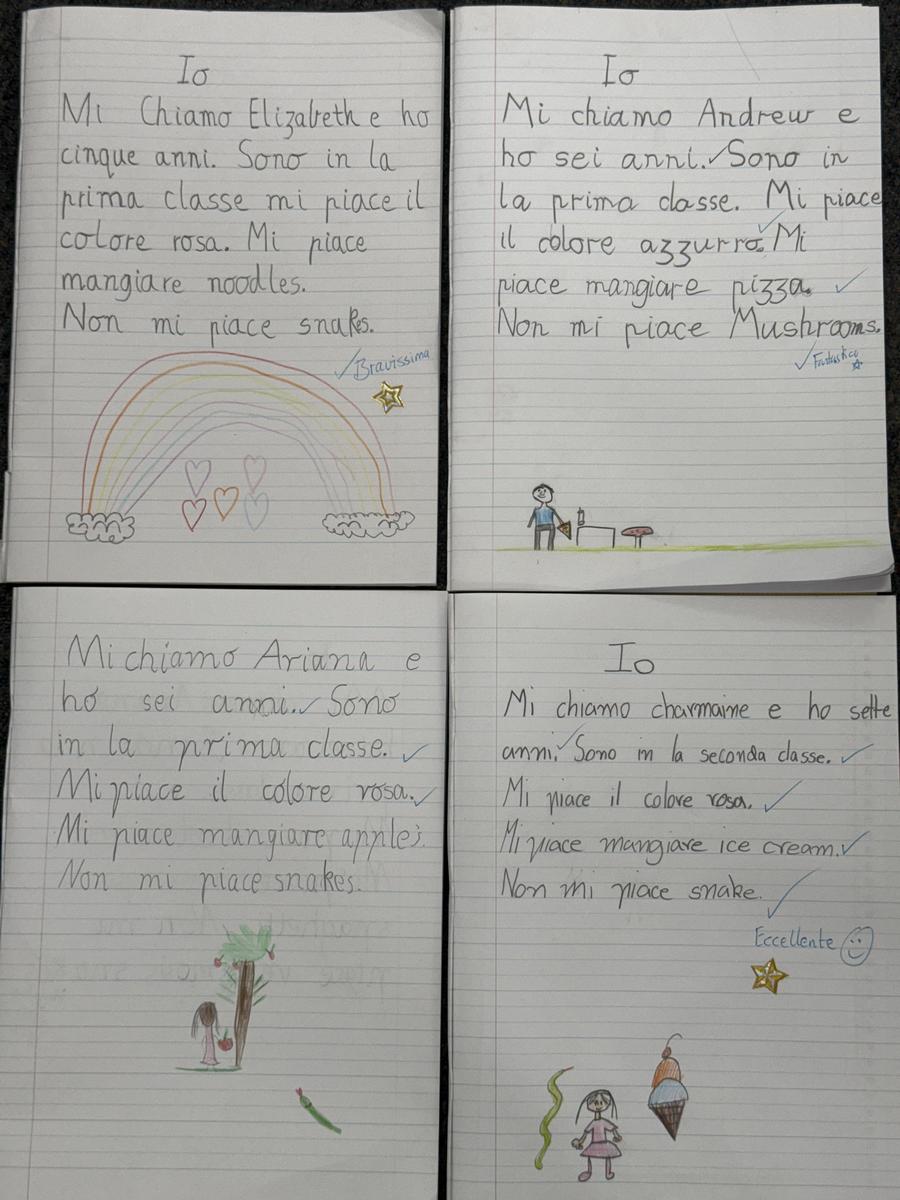 Io
Mi Chiamo Elizabeth e ho
cinque anni. Sono in la
prima classe mi piace il
colore rosa. Mi piace
mangiare noodles.
Non mi piace snakes.
Bravissima
Io
Mi chiamo Andrew e
ho sei anni. Sono in
la prima classe. Mi piace
il colore azzurro. Mi
piace mangiare pizza.
Non mi piace Mushrooms.
Fantastico
Mi chiamo Ariana e
ho sei anni. Sono
in la prima classe.
Mi piace il colore rosa.
Mi piace mangiare apples.
Non mi piace snakes.
Io
Mi chiamo charmaine e ho sette
anni. Sono in la seconda classe.
Mi piace il colore rosa.
Mi piace mangiare ice cream.
Non mi piace snake.
Eccellente